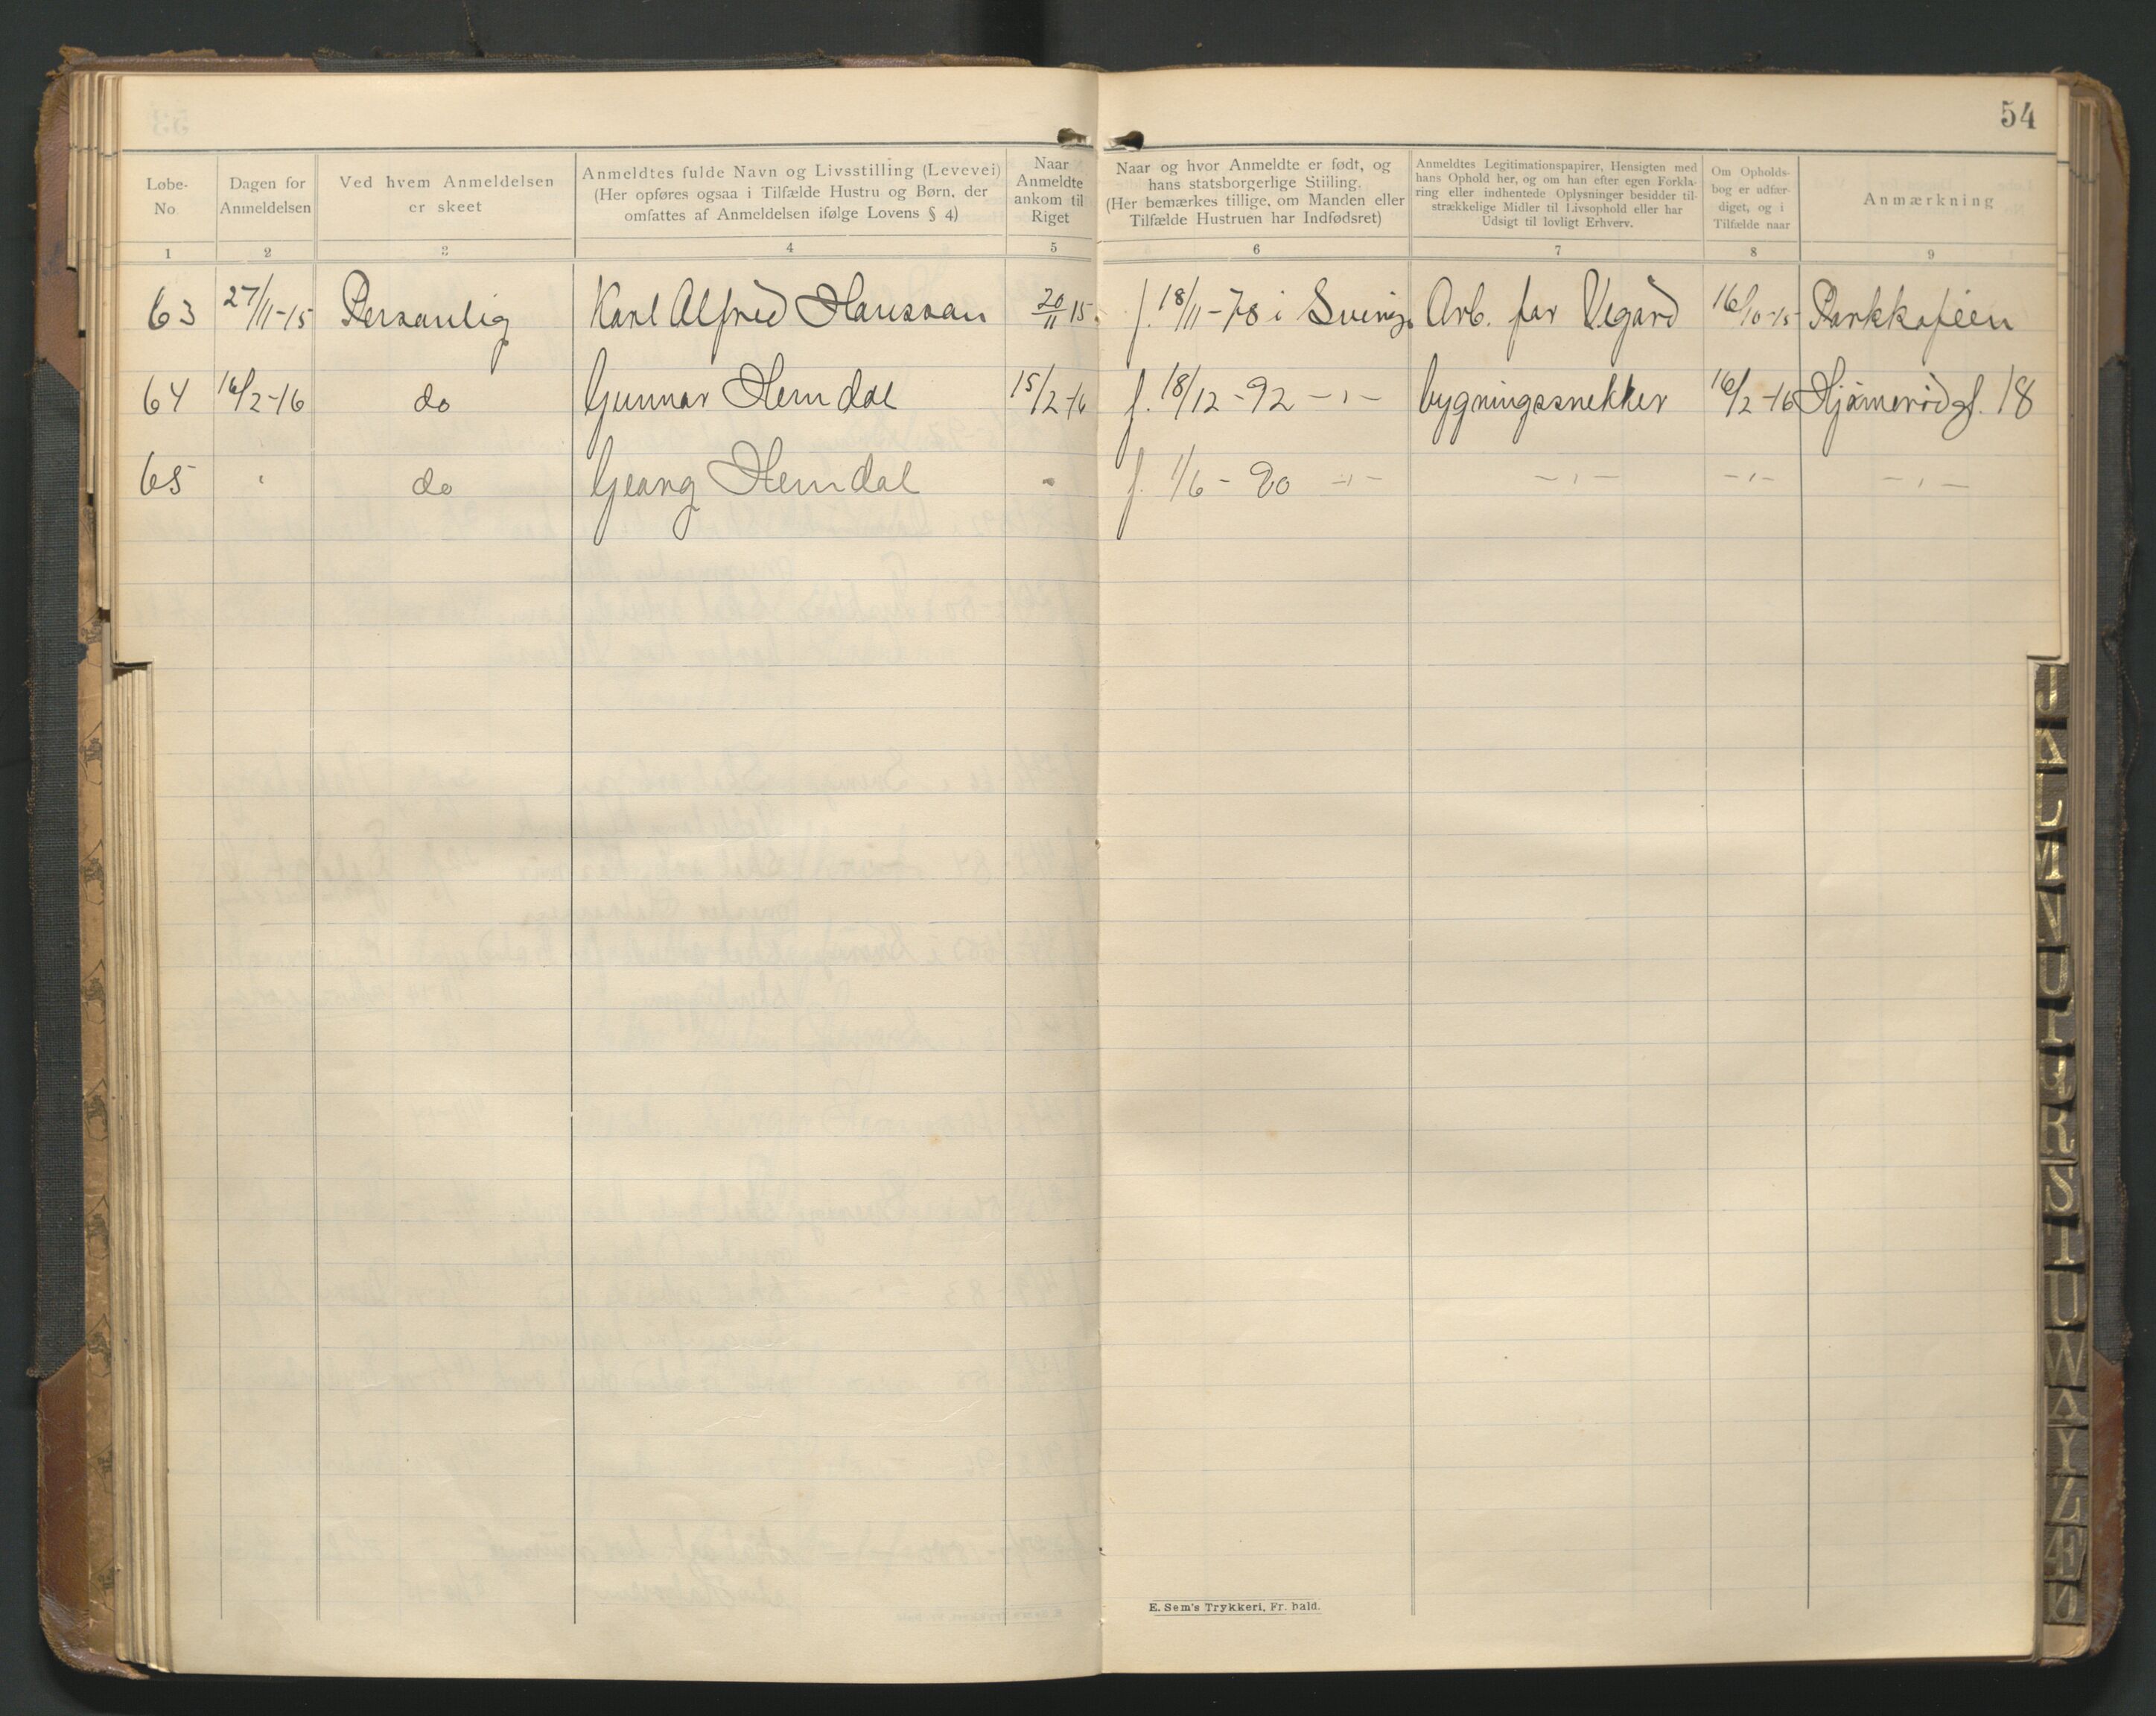 54
Løbe-No
Dagen for Anmeldelsen
Ved hvem Anmeldelsen er skeet
Anmeldtes fulde Navn og Livsstilling (Levevei) (Her opføres ogsaa i Tilfælde Hustru og Børn, der omfattes af Anmeldelsen ifølge Lovens § 4)
Naar Anmeldte ankom til Riget
Naar og hvor Anmeldte er født, og hans statsborgerlige Stilling. (Her bemærkes tillige, om Manden eller Tilfælde Hustruen har Indfødsret)
Anmeldtes Legitimationspapirer, Hensigten med hans Ophold her, og om han efter egen Forklaring eller indhentede Oplysninger besidder tilstrækkelige Midler til Livsophold eller har Udsigt til lovligt Erhverv.
Om Opholdsbog er udfærdiget, og i Tilfælde naar
Anmærkning
1 2 3 4 5 6 7 8 9
63 27/11-15 Personlig Karl Alfred Hansson 20/11 15. f. 18/11-78 i Sverig. Arb. for Vegard 16/10-15 Parkkaféen
64 16/2-16 do Gunnar Hemdal 15/2-16 f. 18/12-92 -"- bygningssnekker 16/2-16 Hjørnerødgt. 18
65 " do Georg Hemdal " f. 1/6-90 -"- -"- -"- -"-
E. Sem's Trykkeri, Fr.hald.
J
K
L
M
N
O
P
Q
R
S
T
U
W
X
Y
Z
Æ
Ø